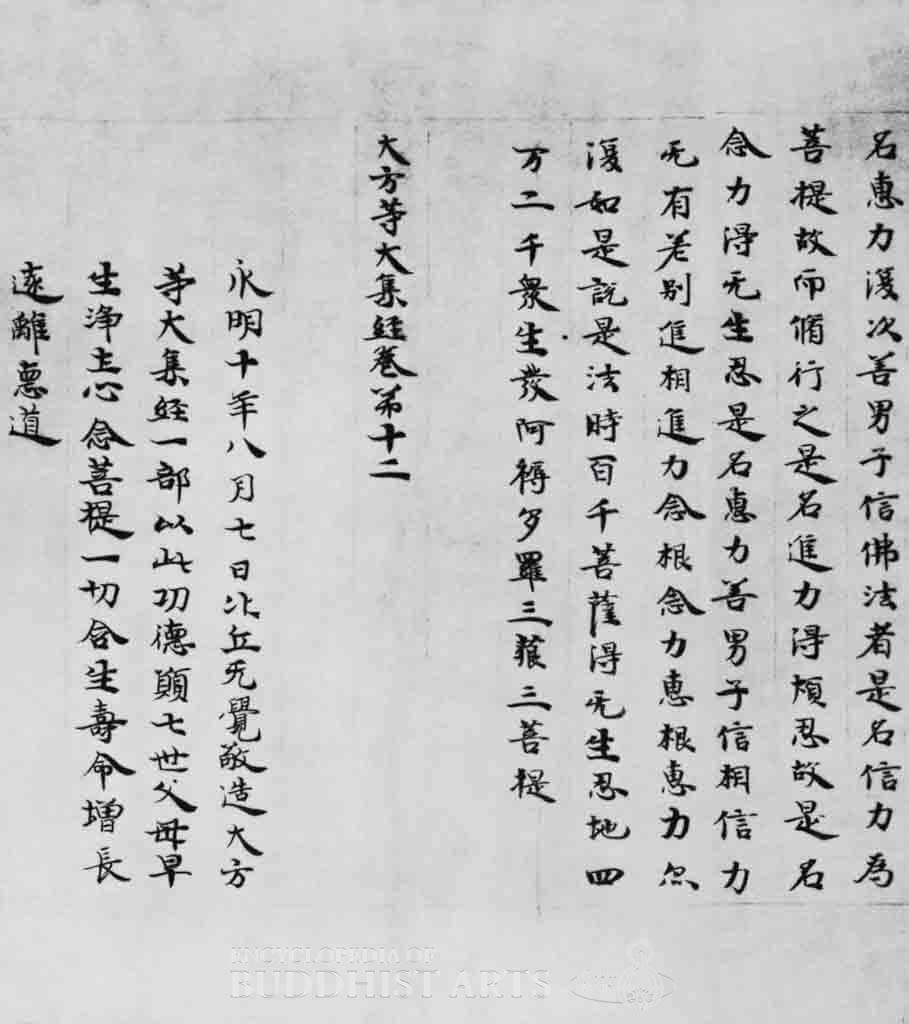 名惠力復次善男子信佛法者是名信力為
菩提故而脩行之是名進力得煩忍故是名
念力得无生忍是名惠力善男子信相信力
无有差别進相進力念根念力惠根惠力尒
復如是說是法時百千菩薩得无生忍地四
万二千衆生發阿耨多羅三藐三菩提
大方等大集經卷第十二
永明十年八月七日比丘无覺敬造大方
等大集經一部以此功德願七世父母早
生浄土心念菩提一切含生壽命增長
遠離惡道
ENCYCLOPEDIA OF
BUDDHIST ARTS